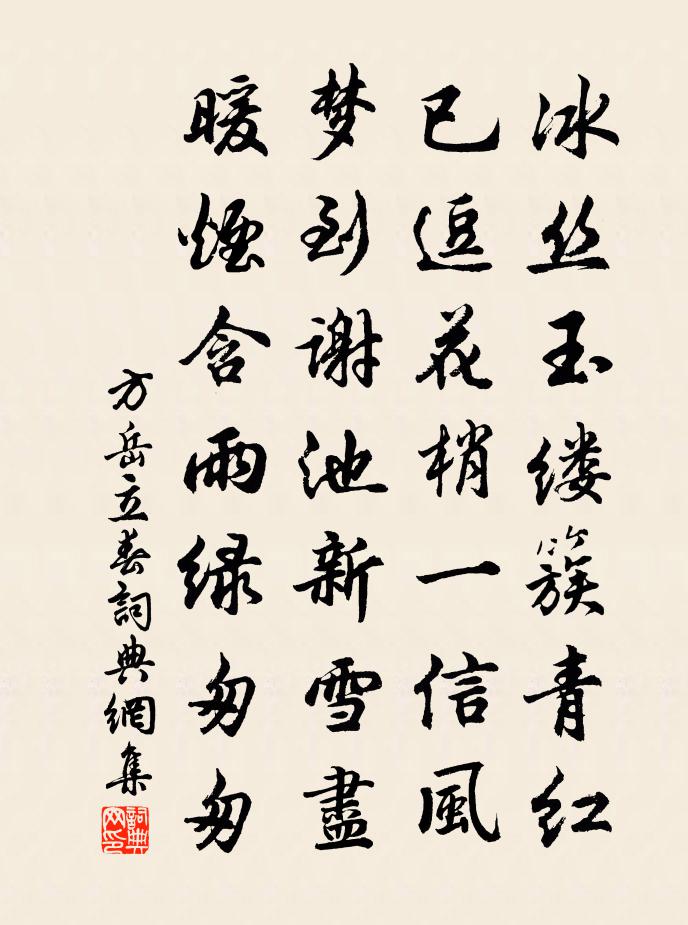 冰丝玉缕簇青红
已逗花梢一信風
梦到谢池新雪盡
暖煙含雨绿匆匆
方岳立春詞典網集
詞典網印